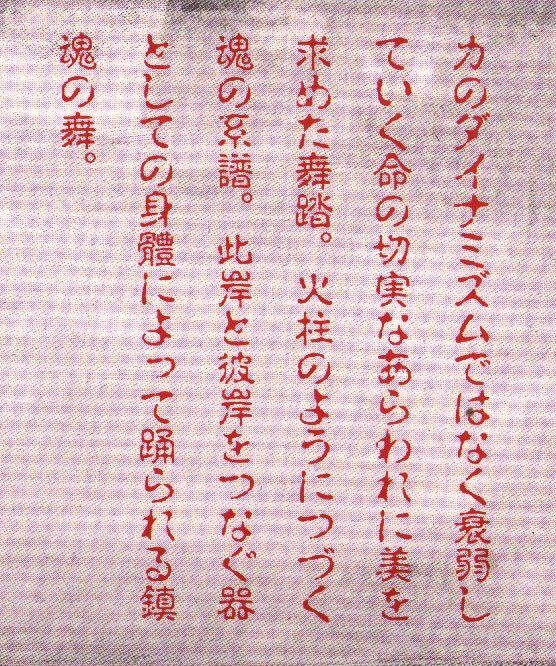 力のダイナミズムではなく衰弱し
ていく命の切実なあらわれに美を
求めた舞踏。火柱のようにつづく
魂の系譜。此岸と彼岸をつなぐ器
としての身體によって踊られる鎮
魂の舞。